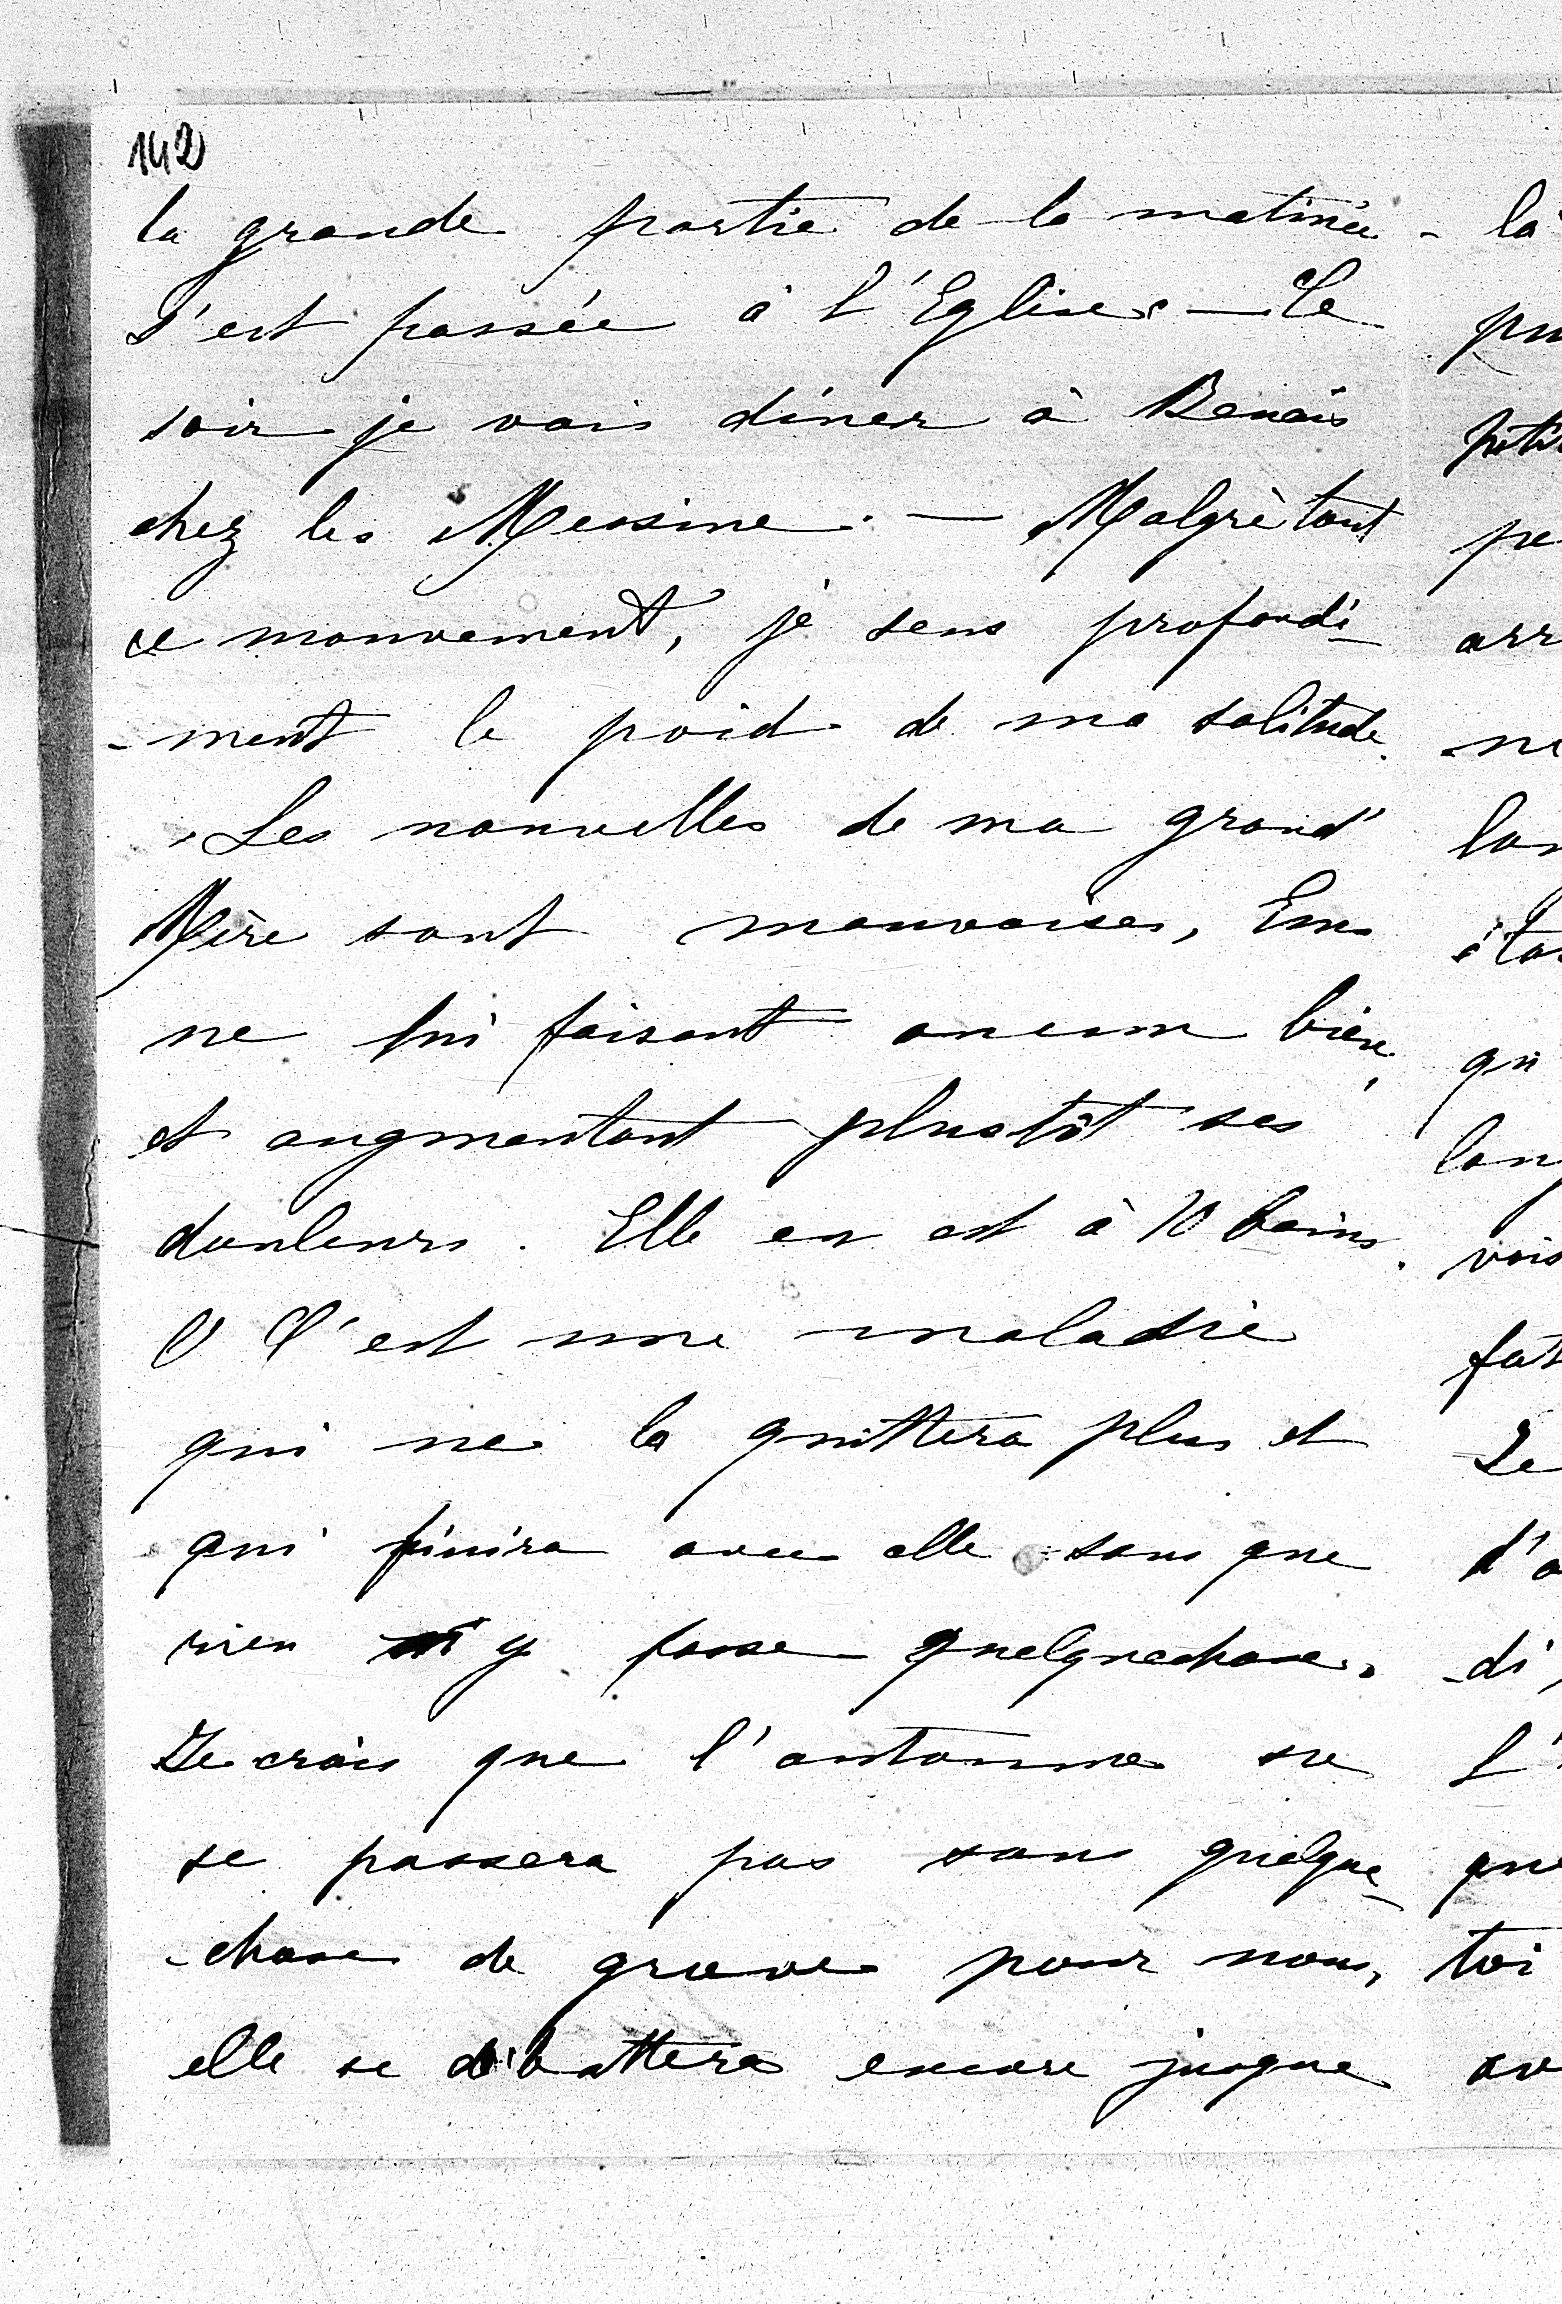 142
la grande partie de la matinée
s'est passée à l'Eglise. — Le
soir je vais dîner à Benais
chez les Messine. — Malgré tout
ce mouvement, je sens profondé-
-ment le poid de ma solitude.
Les nouvelles de ma grand'
Mère sont mauvaises, Ems
ne lui faisant aucun bien,
et augmentant plustôt ses
douleurs. Elle en est à 10 bains.
C'est une maladie
qui ne la quittera plus et
qui finira avec elle sans que
rien y fasse quelquechose.
Je crois que l'automne ne
se passera pas sans quelque-
-chose de grave pour nous,
elle se débattera encore jusque